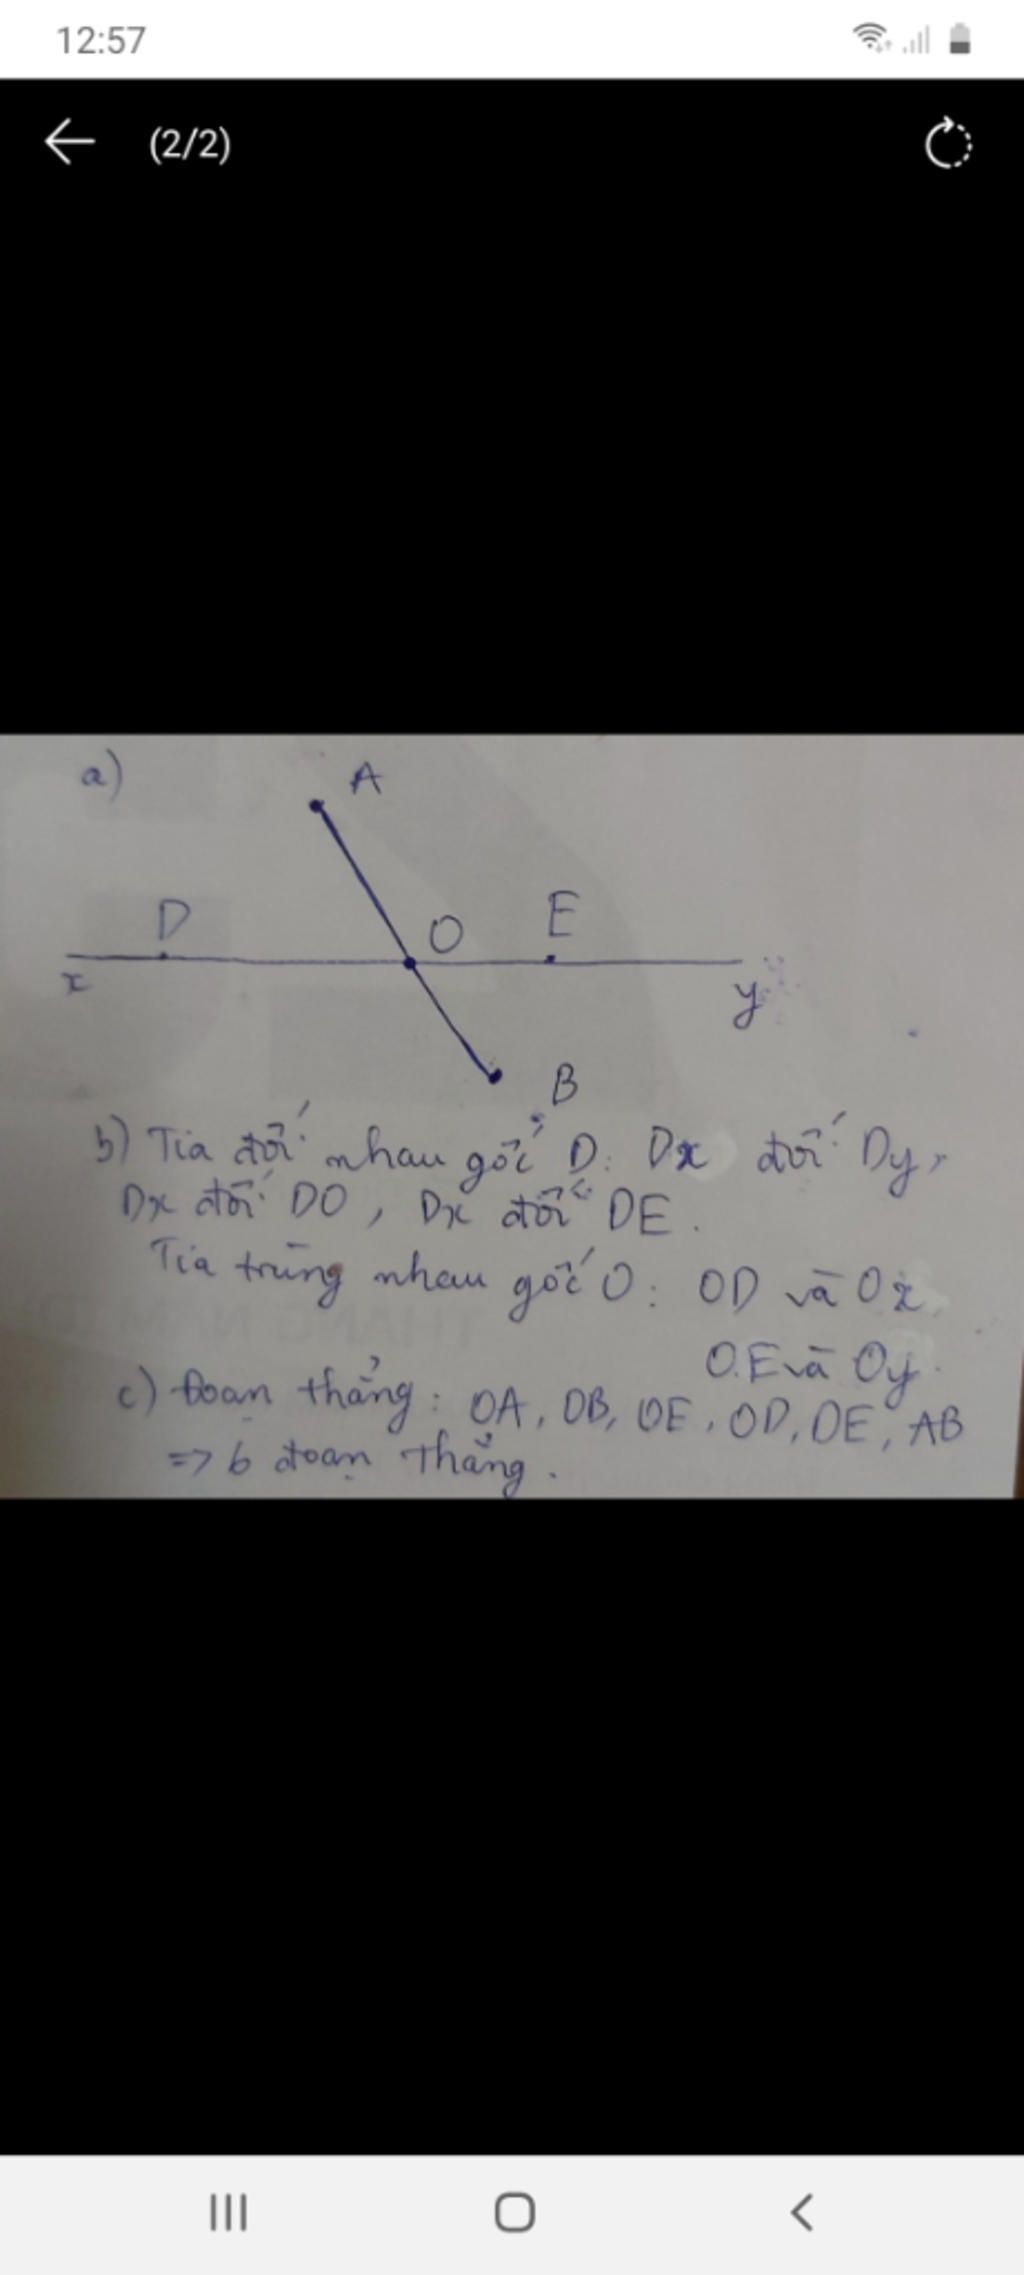 12:57
(2/2)
a)
A
D
O
E
x
y
B
b) Tia đối nhau gốc D: Dx đối Dy,
Dx đối DO, Dx đối DE.
Tia trùng nhau gốc O: OD và Ox
O.E và Oy.
c) Đoạn thẳng: OA, OB, OE, OD, DE, AB
=> 6 đoạn thẳng.